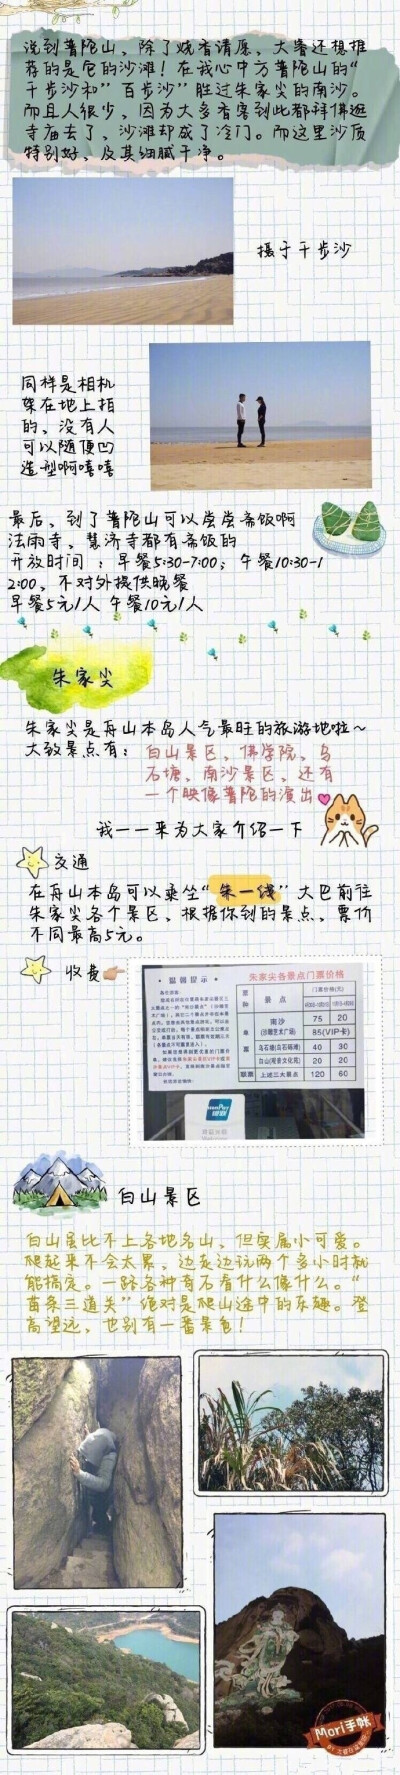 说到普陀山，除了烧香请愿，大客还想推
荐的是它的沙滩！在我心中方普陀山的“
千步沙和”百步沙”胜过朱家尖的南沙。
而且人很少，因为大多香客到此都拜佛逛
寺庙去了，沙滩却成了冷门。而这里沙质
特别好，及其细腻干净。
摄于千步沙
同样是相机
架在地上拍
的，没有人
可以随便凹
造型啊嘻嘻
最后，到了普陀山可以尝尝斋饭啊
法雨寺，慧济寺都有斋饭的
开放时间：早餐5:30-7:00；午餐10:30-1
2:00，不对外提供晚餐
早餐5元/人 午餐10元/人
朱家尖
朱家尖是舟山本岛人气最旺的旅游地啦~
大致景点有：白山景区，佛学院，乌
石塘，南沙景区，还有
一个映像普陀的演出
我一一来为大家介绍一下
交通
在舟山本岛可以乘坐“朱一线”大巴前往
朱家尖各个景区，根据你到的景点，票价
不同最高5元。
收费
温馨提示
朱家尖各景点门票价格
票种 景点 门票价格(元)
单票 南沙 75 20
(沙雕艺术广场) 85(VIP卡)
乌石塘(乌石砾滩) 40 30
白山(观音文化苑) 20 20
联票 上述三大景点 120 60
银联
白山景区
白山虽比不上各地名山，但实属小可爱。
爬起来不会太累，边走边玩两个多小时就
能搞定。一路各种奇石看什么像什么。“
苗条三道关”绝对是爬山途中的乐趣。登
高望远，也别有一番景色！
Mori手帐